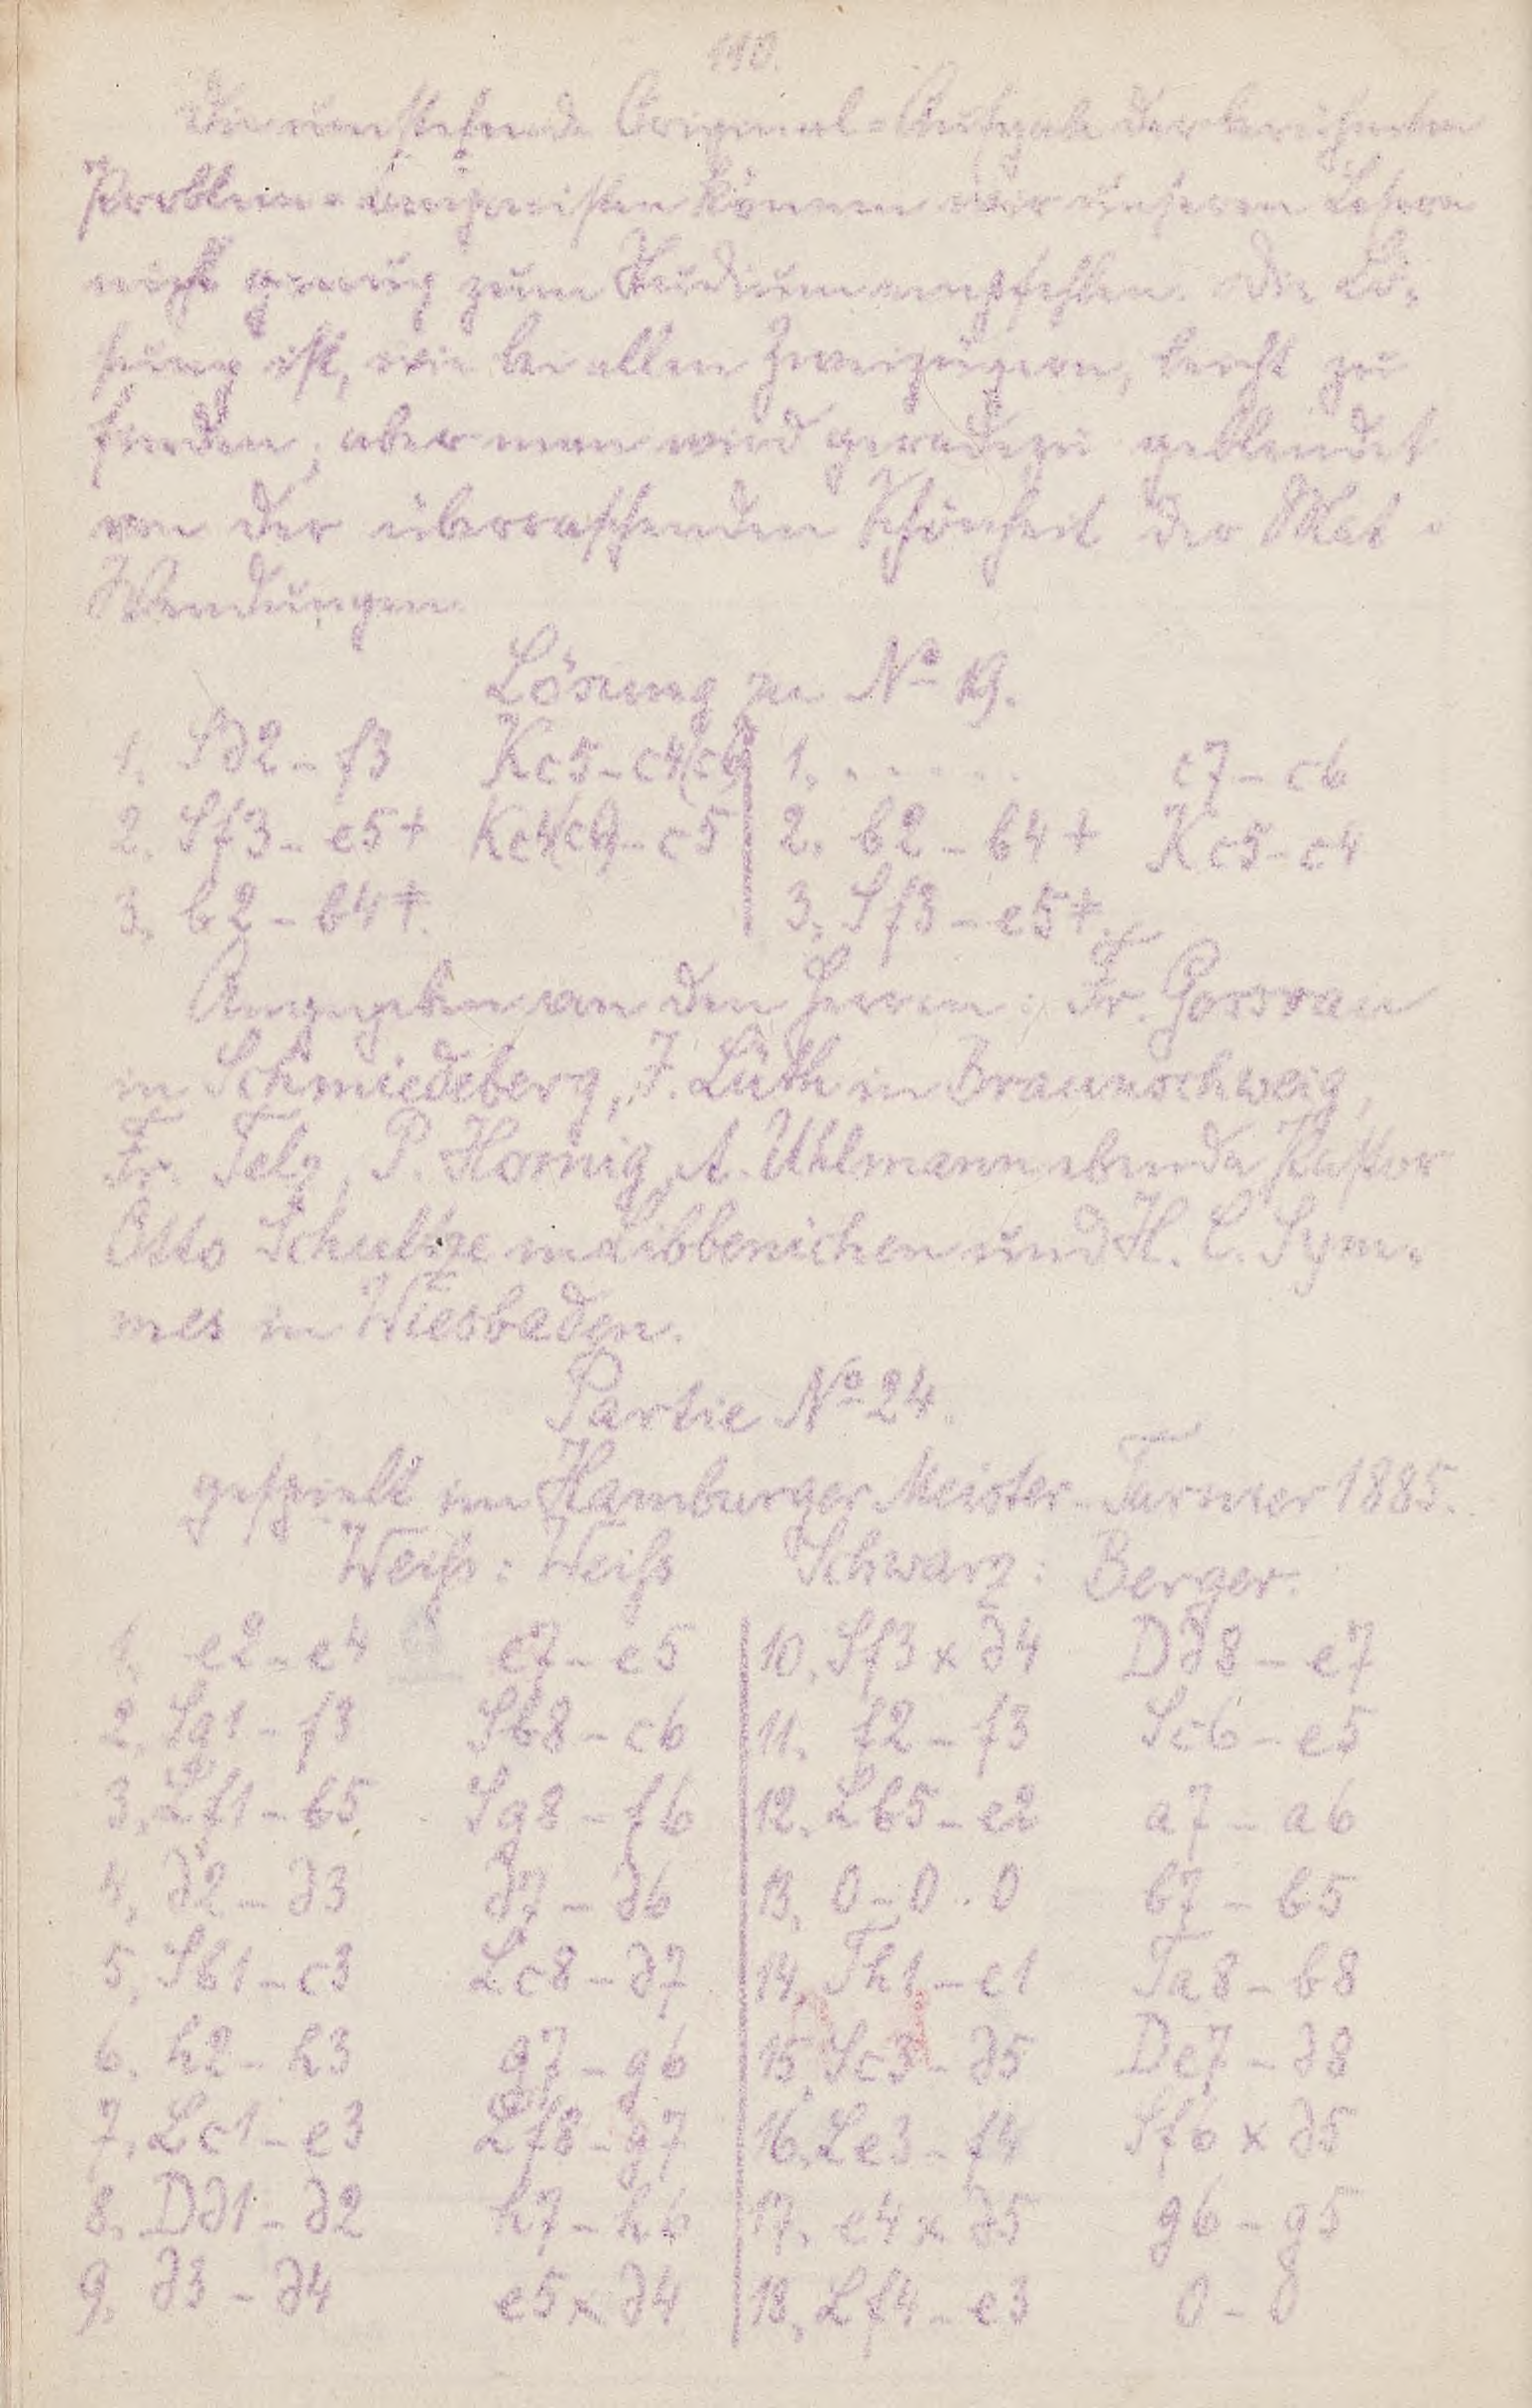 110.
Die umstehende Original-Aufgabe des berühmten
Problem-Componisten können wir unseren Lesern
nicht genug zum Studium empfehlen. Die Lö-
sung ist, wie bei allen Zweizügern, leicht zu
finden, aber man wird geradezu geblendet
von der überraschenden Schönheit der Mat-
Wendungen.
Lösung zu No 19.
1. Sd2-f3 Kc5-c4(c6) 1. . . . . . . c7-c6
2. Sf3-e5+ Kc4(c6)-c5 2. b2-b4+ Kc5-c4
3. b2-b4‡. 3. Sf3-e5‡.
Angegeben von den Herren: Fr. Gossrau
in Schmiedeberg, J. Lüth in Braunschweig,
Fr. Telz, P. Hornig, A. Uhlmann ebenda Pastor
Otto Schultze in Libbenichen und H. C. Sym-
mes in Wiesbaden.
Partie No 24.
gespielt im Hamburger Meister-Turnier 1885.
Weiss: Weiss Schwarz: Berger.
1. e2-e4 e7-e5 10. Sf3xd4 Dd8-e7
2. Sg1-f3 Sb8-c6 11. f2-f3 Sc6-e5
3. Lf1-b5 Sg8-f6 12. Lb5-e2 a7-a6
4. d2-d3 d7-d6 13. 0-0-0 b7-b5
5. Sb1-c3 Lc8-d7 14. Th1-e1 Ta8-b8
6. h2-h3 g7-g6 15. Sc3-d5 De7-d8
7. Lc1-e3 Lf8-g7 16. Le3-f4 Sf6xd5
8. Dd1-d2 h7-h6 17. e4xd5 g6-g5
9. d3-d4 e5xd4 18. Lf4-e3 0-0